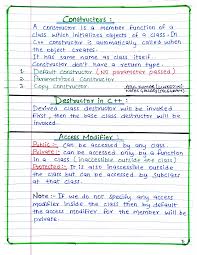 Constructors :
A constructor is a member function of a
class which initializes objects of a class. In
C++ constructor is automatically called when
the object creates.
It has same name as class itself.
Constructor don't have a return type.
1 Default constructor (No parameter passed)
2 Parametrized Constructor
3 Copy constructor
Destructor in C++ :
Derived class destructor will be invoked
first, then the base class destructor will be
invoked.
Access Modifier :
Public :- can be accessed by any class.
Private :- can be accessed only by a function
in a class (inaccessible outside the class)
Protected :- It is also inaccessible outside
the class but can be accessed by subclass
of that class.
Note :- If we do not specify any access
modifier inside the class then by default
the access modifier for the member will be
private.